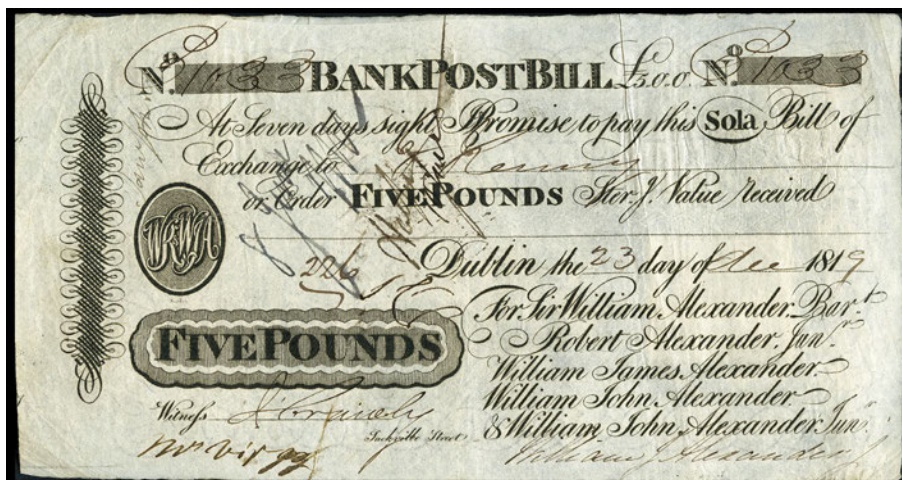 No. 1033 BANK POST BILL £5.0.0. No. 1033
At Seven days sight, I Promise to pay this Sola Bill of
Exchange to
or Order FIVE POUNDS Ster.g. Value received
Dublin the 23 day of Dec 1819
For Sir William Alexander Bar.t
Robert Alexander, Jun.r
William James Alexander
FIVE POUNDS
William John Alexander
& William John Alexander Jun.r
Witness
Sackville Street
William J Alexander